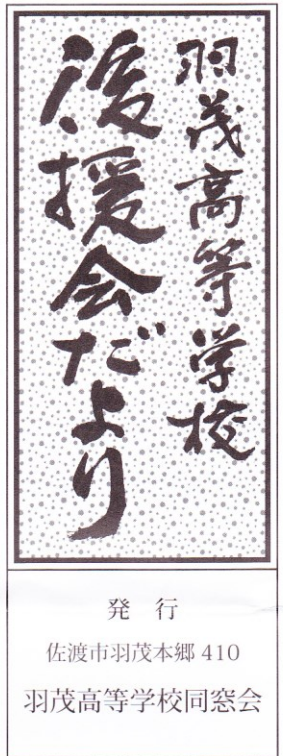 羽茂高等学校
後援会だより
発 行
佐渡市羽茂本郷 410
羽茂高等学校同窓会